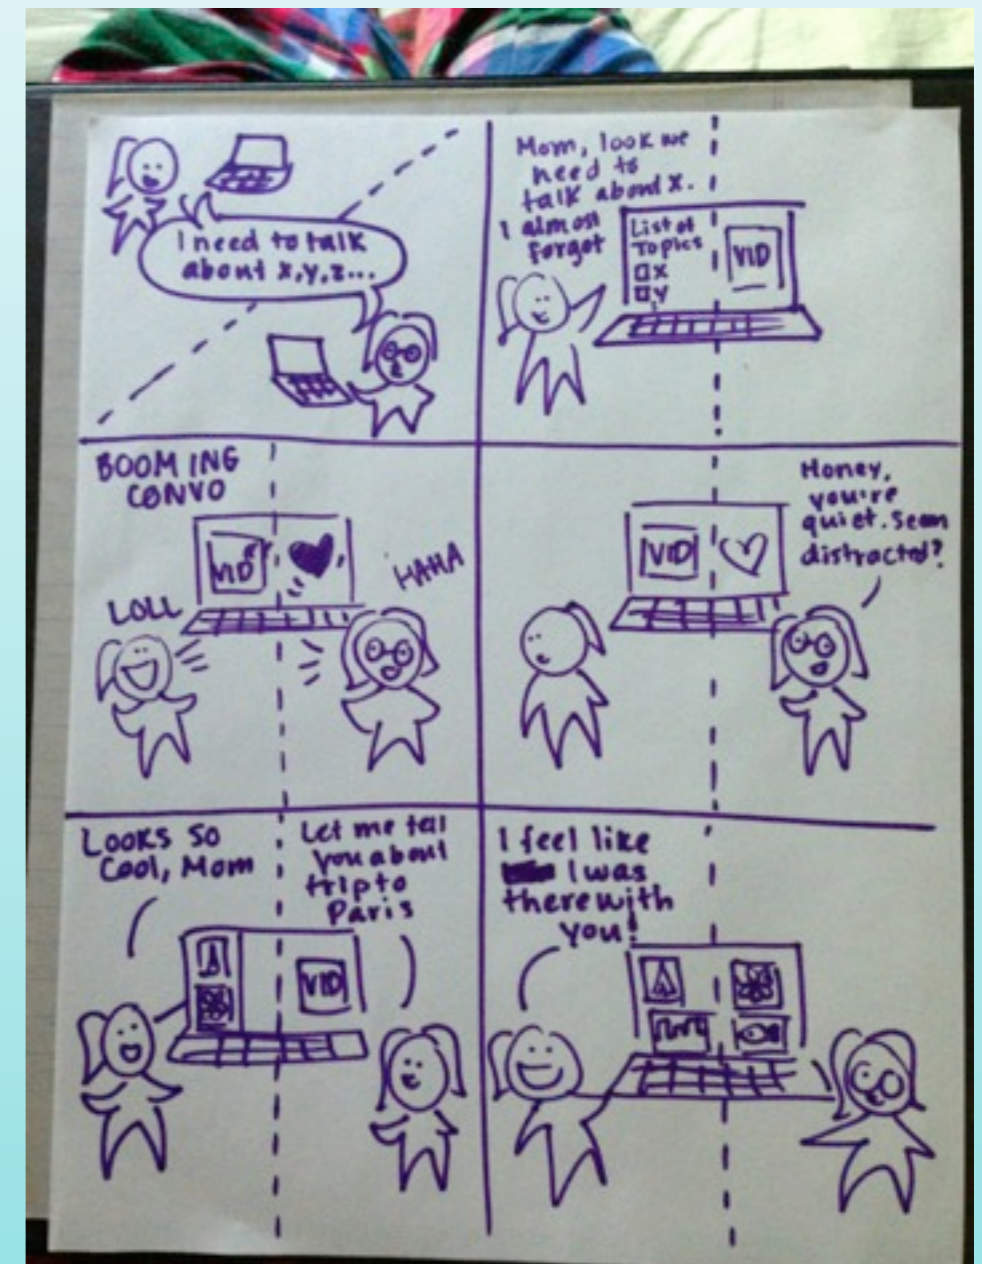 I need to talk
about x,y,z...
Mom, look we
need to
talk about x.
I almost
forgot
List of
Topics
x
y
VID
BOOMING
CONVO
VID
LOLL
HAHA
VID
Honey,
you're
quiet. Seem
distracted?
Looks so
Cool, Mom
Let me tell
you about
trip to
Paris
VID
I feel like
I was
there with
you!